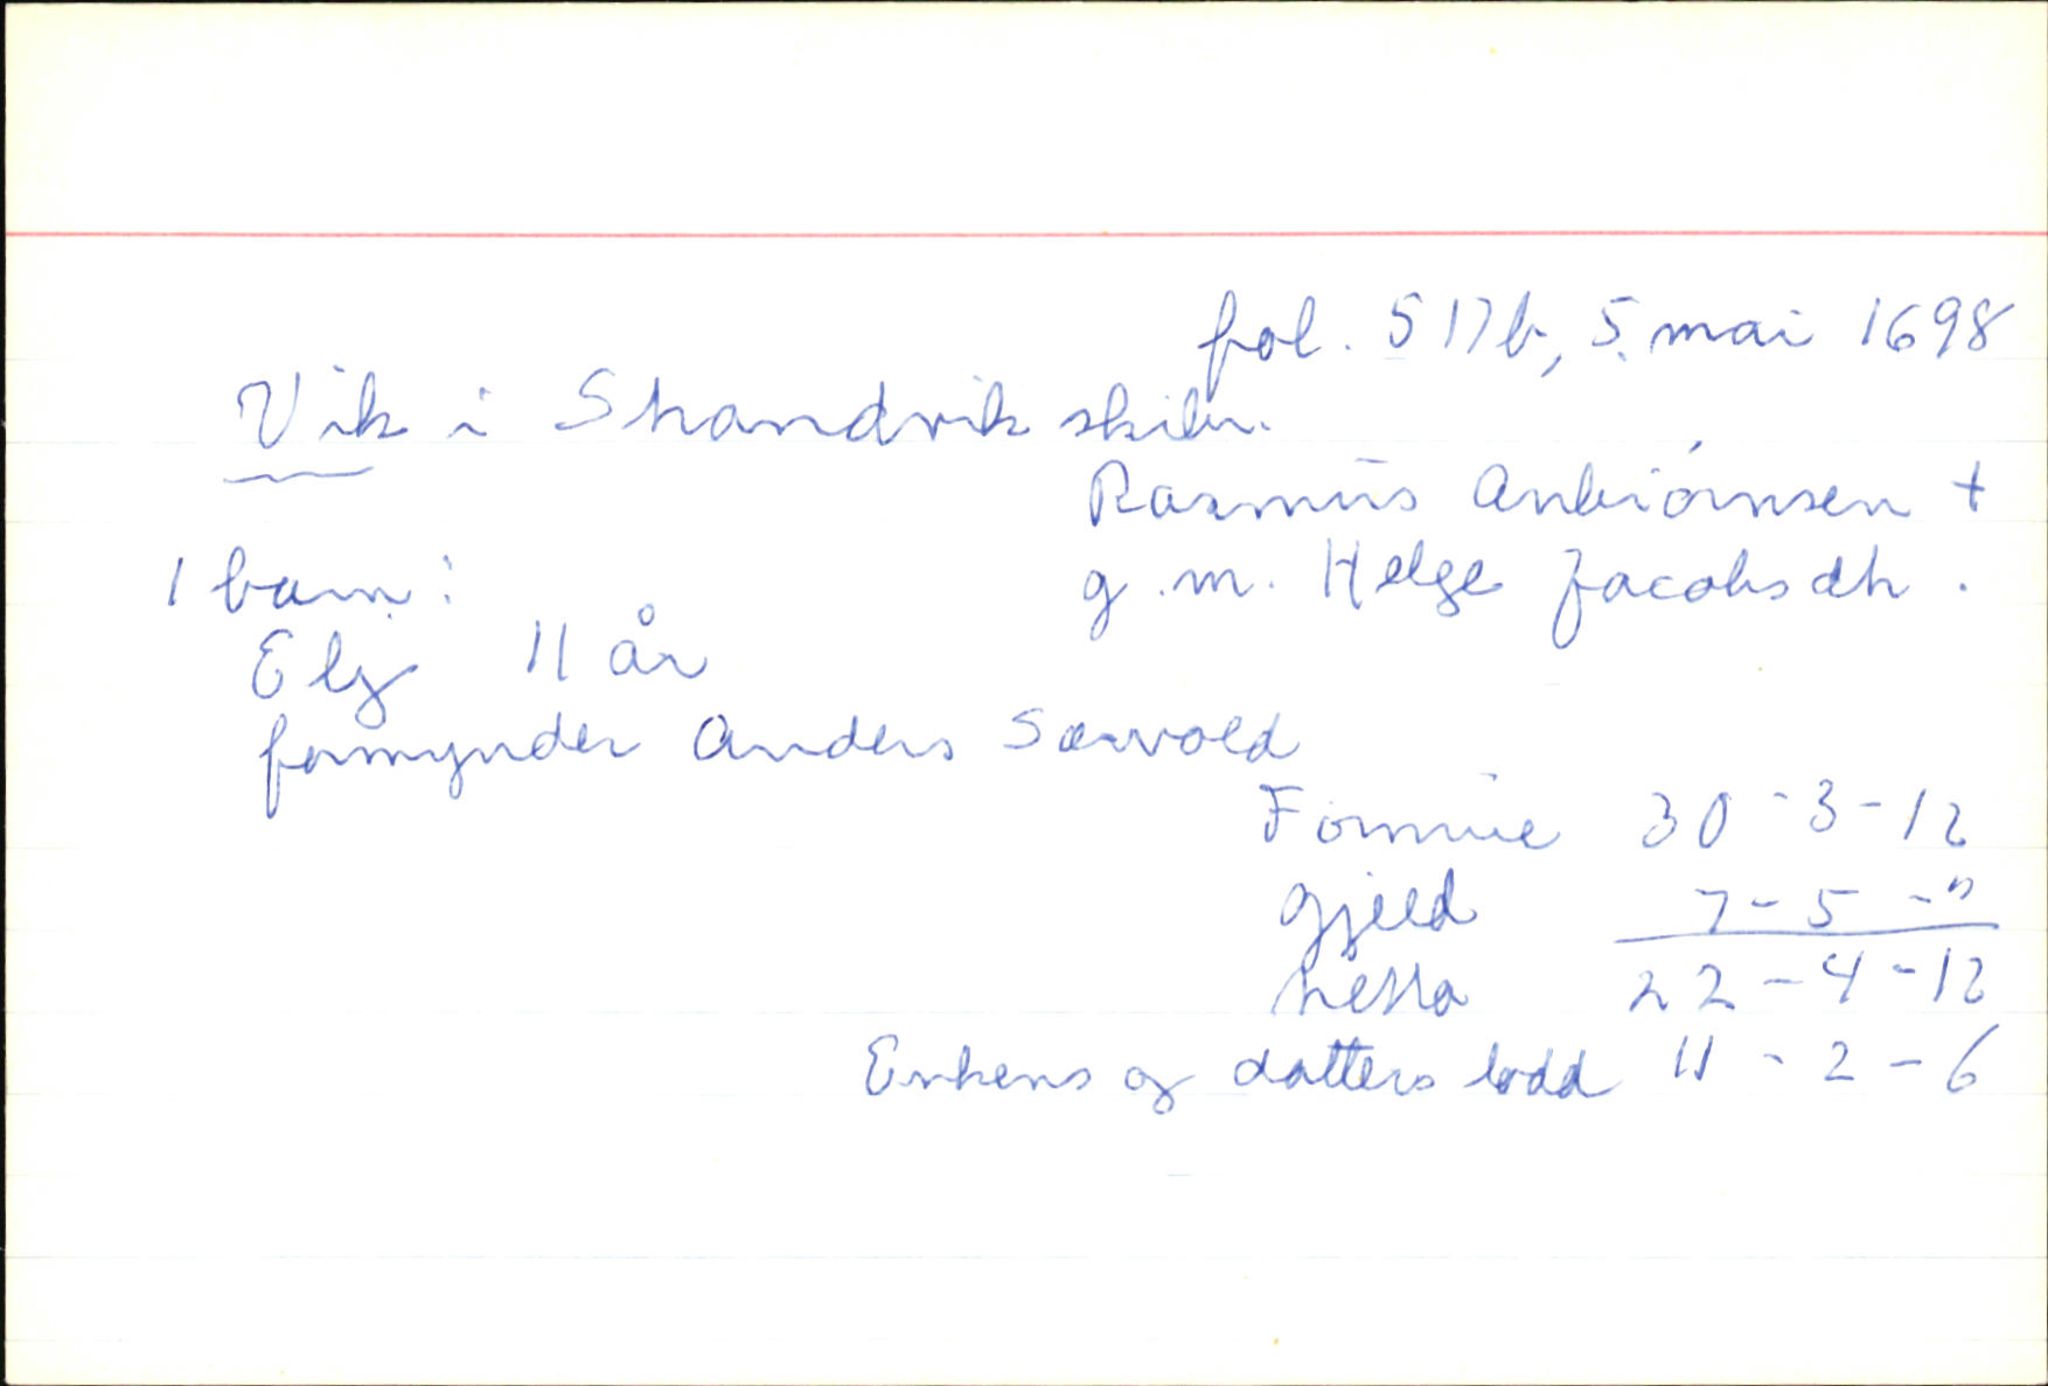 fol. 517b, 5. mai 1698
Vik i Skandvik skibr.
Rasmus Anbiørnsen +
1 barn:
g.m. Helge Jacobsdtr.
Elj 11 år
formynder Anders Sævold
Formue 30-3-12
gjeld 7-5-"
netto 22-4-12
Enkens og datters lodd 11-2-6